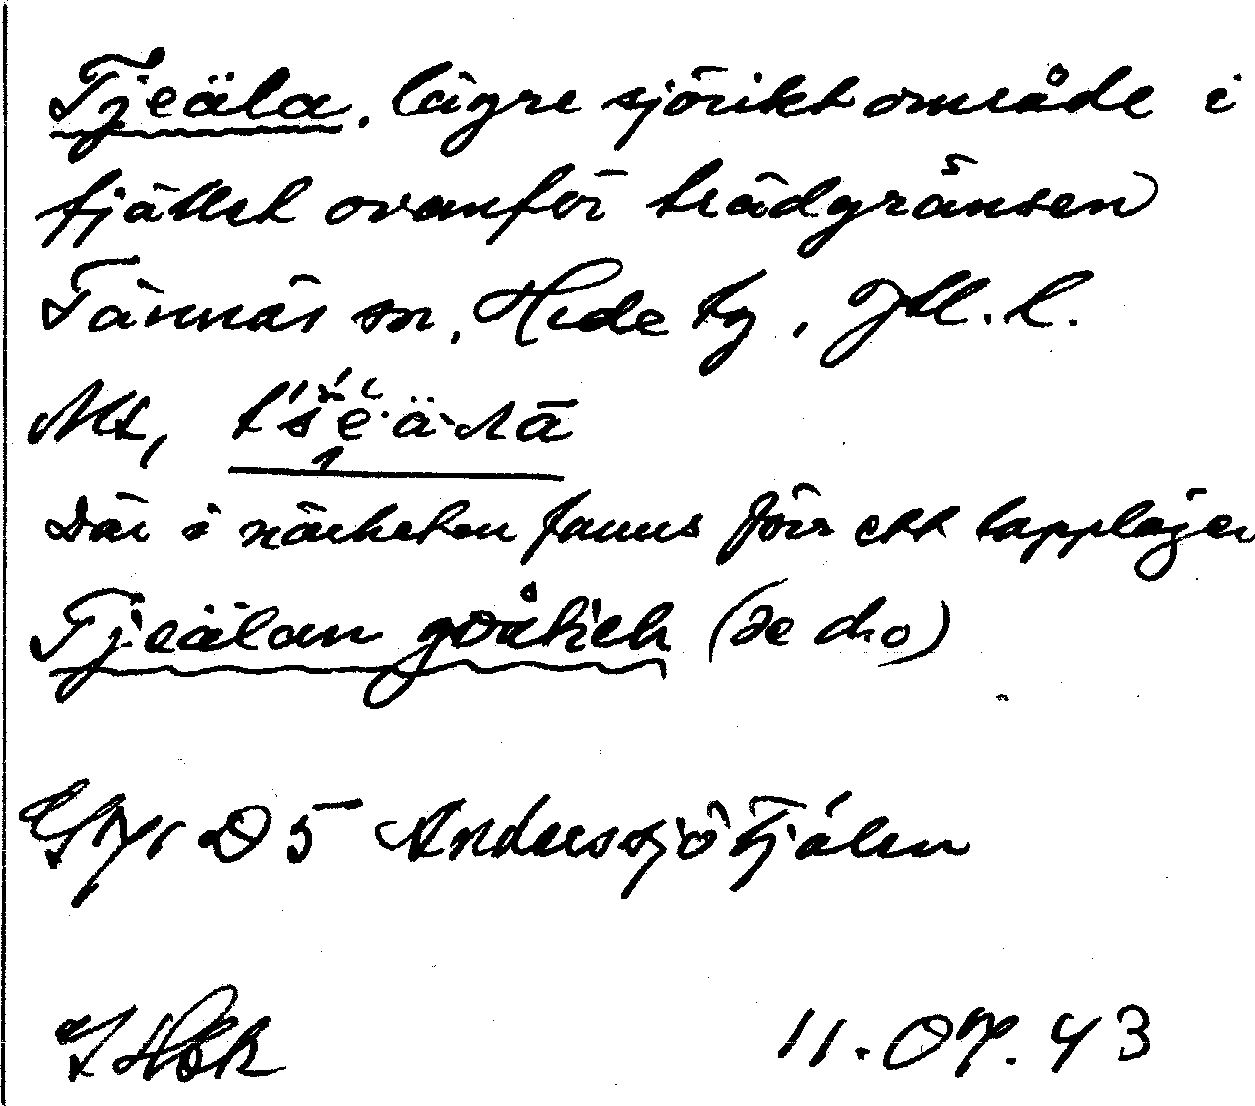 Tjeäla, lägre sjörikt område i
fjället ovanför trädgränsen
Tännäs sn, Hede tg, Jtl. l.
Där i närheten fanns förr ett lappläger
Tjeälan gåetieh (se d:o)
D5 Anderssjötjålen
11.07.43